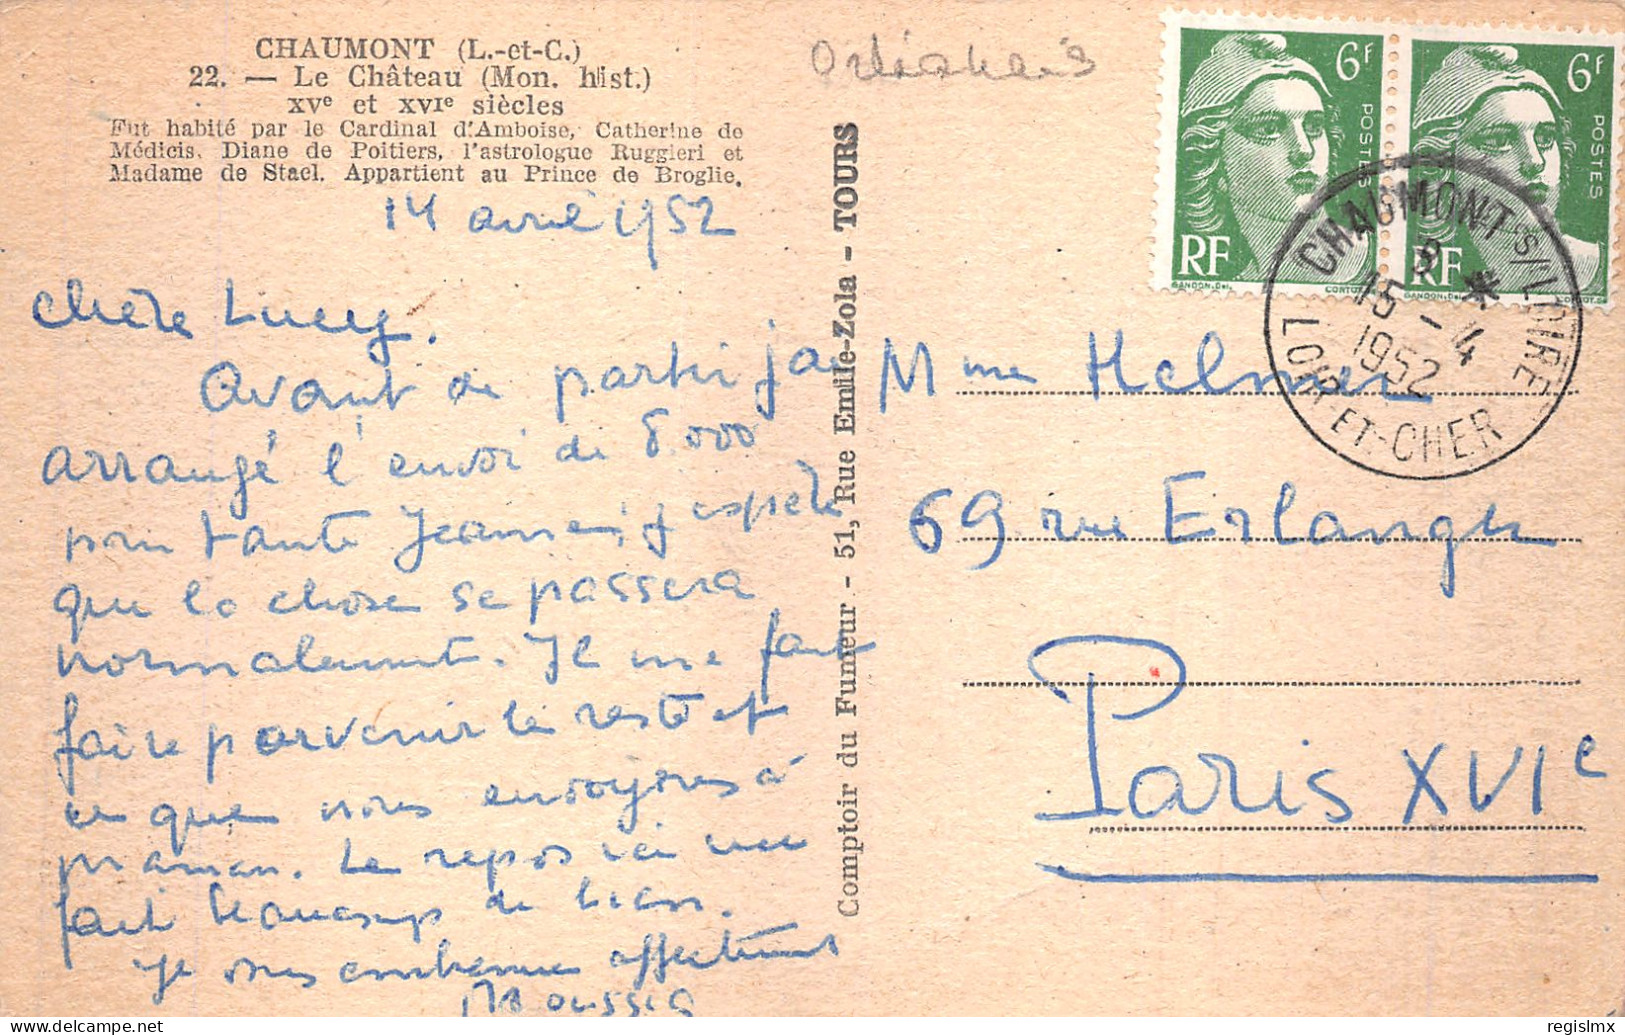 CHAUMONT (L.-et-C.)
22. — Le Château (Mon. hist.)
XVe et XVIe siècles
Fut habité par le Cardinal d'Amboise, Catherine de
Médicis, Diane de Poitiers, l'astrologue Ruggieri et
Madame de Stael. Appartient au Prince de Broglie.
14 avril 1952
Chère Lucy.
Avant de partir j'ai
arrangé l'envoi de 8.000
tante j'espère
que la chose se passera
normalement. Il me faut
faire parvenir le reste et
ce que nous envoyons à
maman. Le repos ici me
fait beaucoup de bien.
Je vous embrasse affectueus
Comptoir du Fumeur - 51, Rue Emile-Zola - TOURS
6F
POSTES
RF
GANDON.Del.
CORTOT.S
6F
POSTES
RF
GANDON.Del.
CORTOT.S
CHAUMONT S/LOIRE
15 - 4
1952
LOIR ET-CHER
Mme Helmer
69 rue Erlanger
Paris XVIe
www.delcampe.net
regislmx